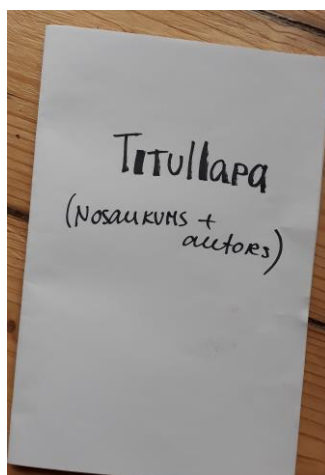 Titullapa
(Nosaukums +
autores)